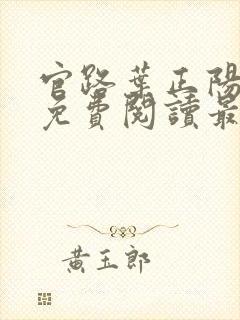 官路葉正陽
免費閱讀最
黃玉郎